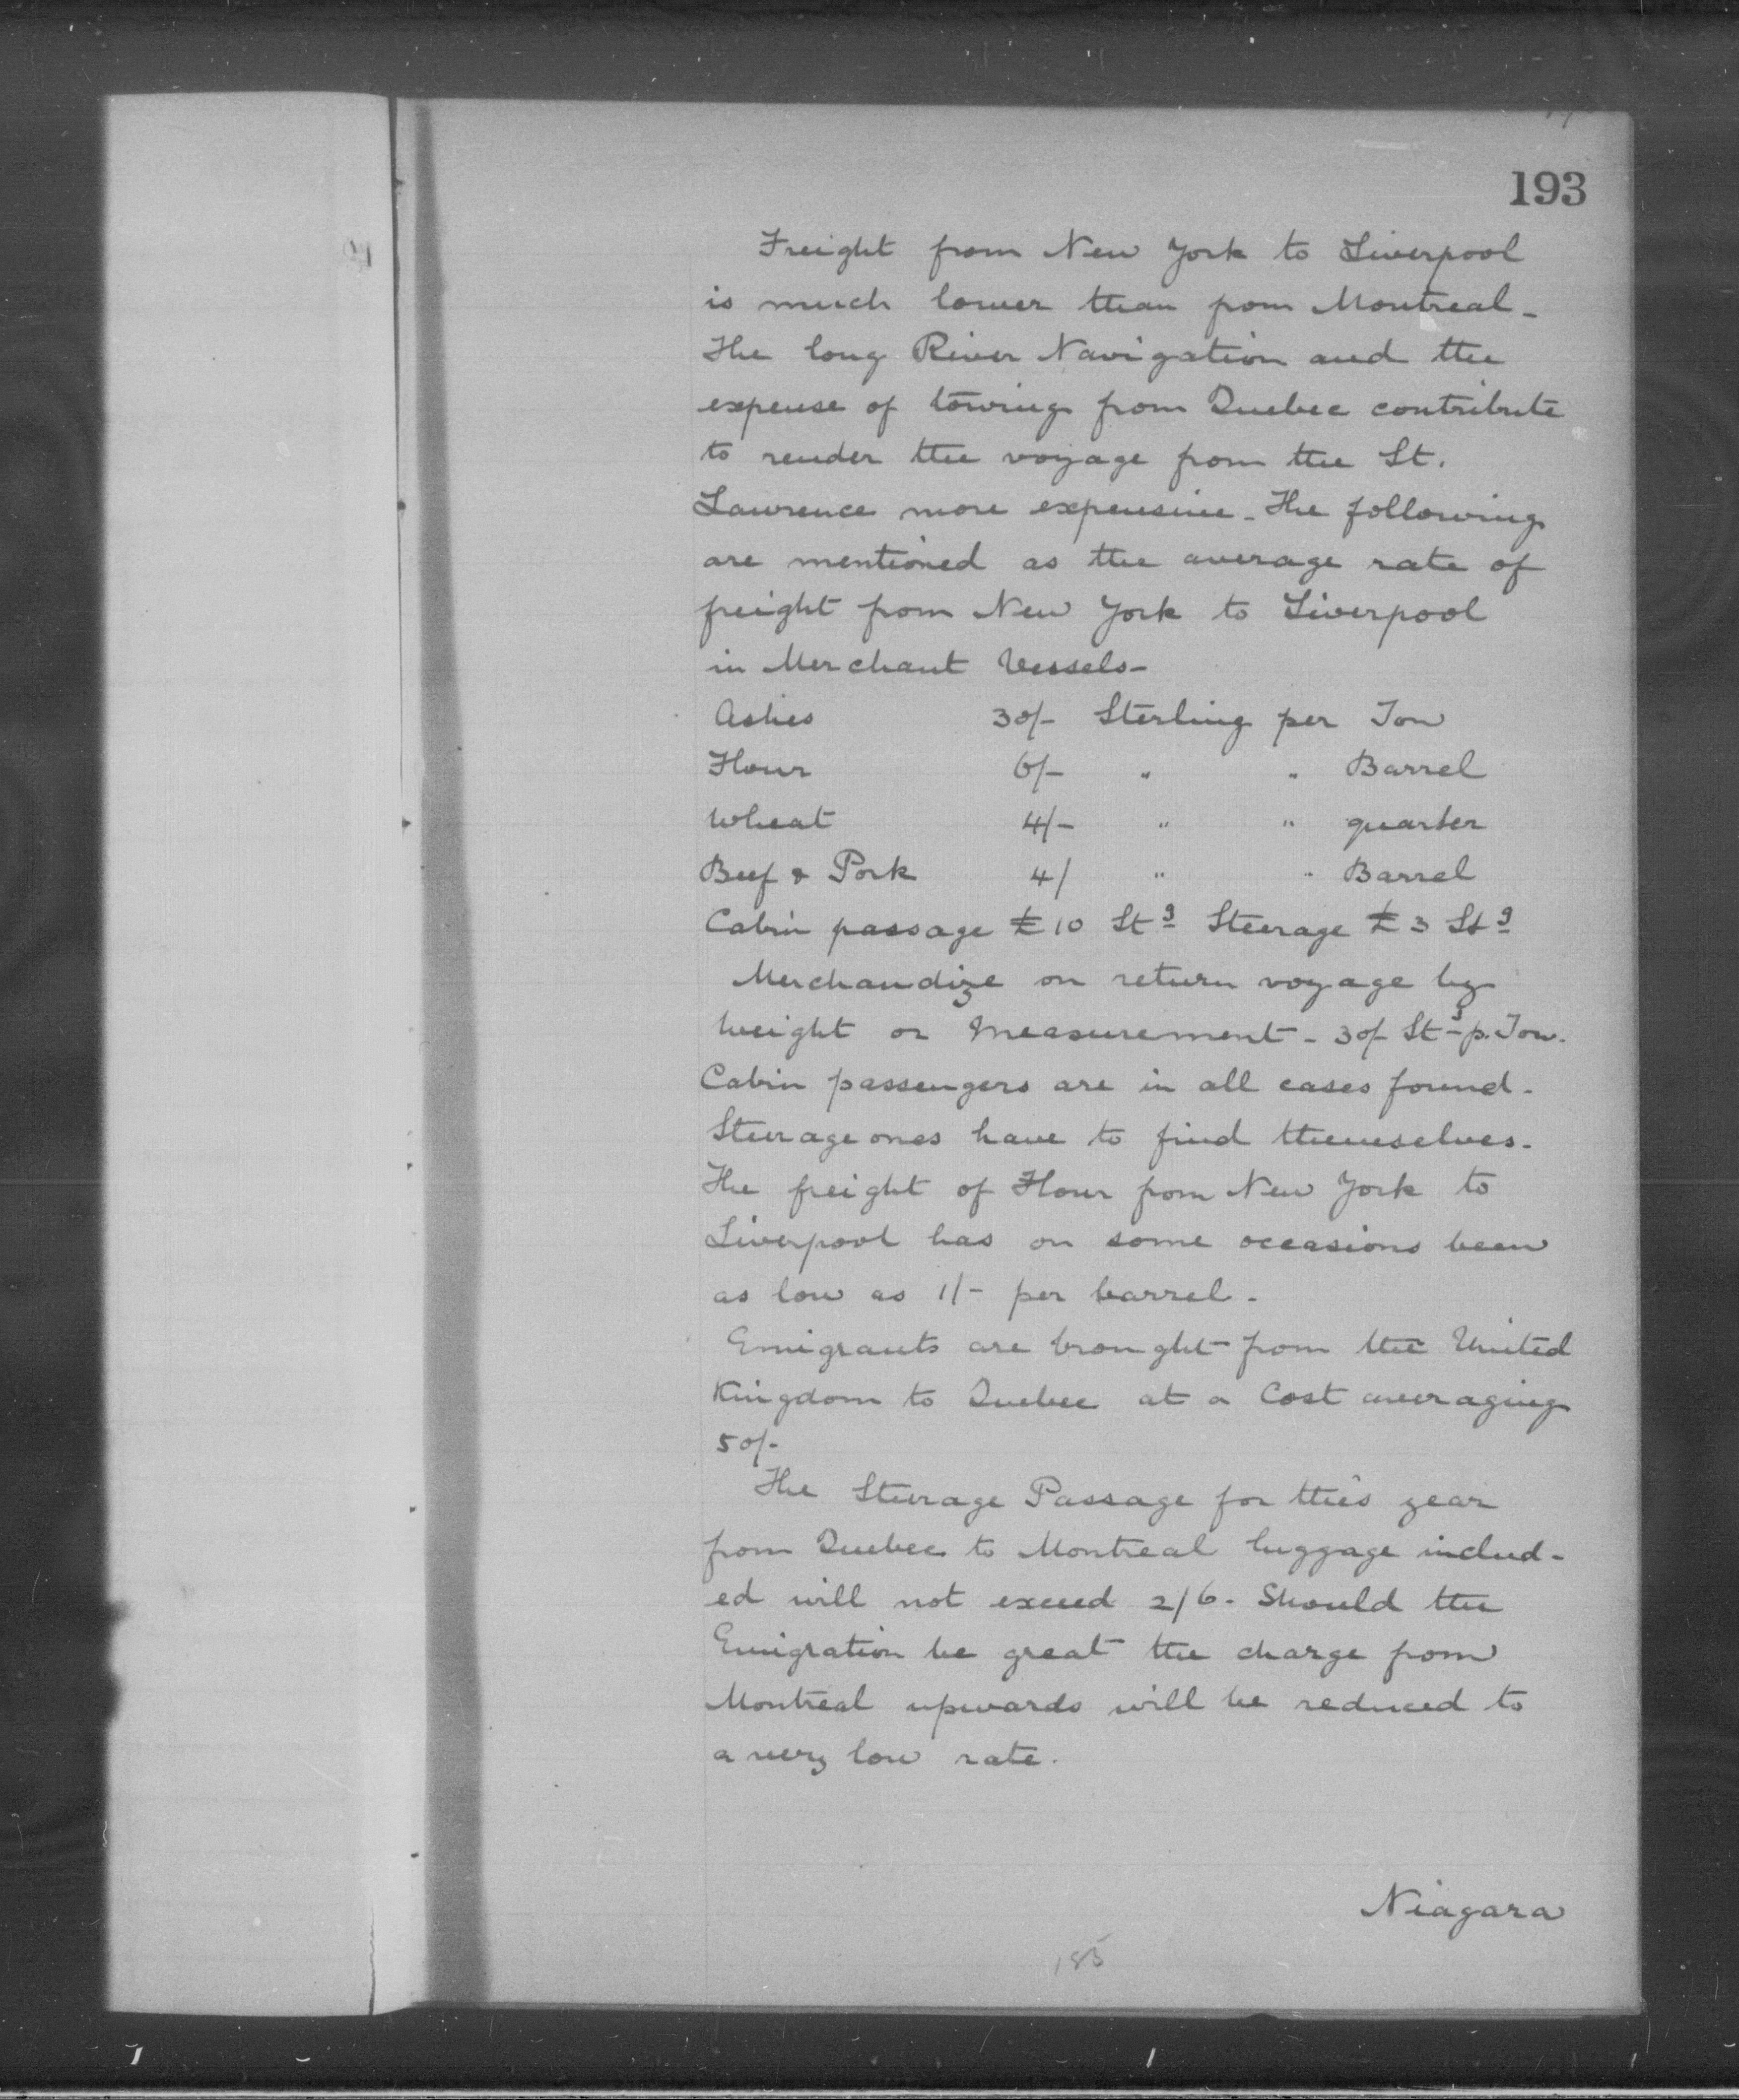 193
Freight from New York to Liverpool
is much lower than from Montreal -
The long River Navigation and the
expense of towing from Quebec contribute
to render the voyage from the St.
Lawrence more expensive - The following
are mentioned as the average rate of
freight from New York to Liverpool
in Merchant Vessels -
Ashes 30/- Sterling per Ton
Flour 6/- " " Barrel
Wheat 4/- " " quarter
Beef & Pork 4/ " " Barrel
Cabin passage £10 Stg Steerage £3 Stg
Merchandize on return voyage by
weight or Measurement - 30/- Stg p. Ton.
Cabin passengers are in all cases found -
Steerage ones have to find themselves -
The freight of Flour from New York to
Liverpool has on some occasions been
as low as 1/- per barrel -
Emigrants are brought from the United
Kingdom to Quebec at a Cost averaging
50/-
The Steerage Passage for this year
from Quebec to Montreal luggage includ-
ed will not exceed 2/6 - Should the
Emigration be great the charge from
Montreal upwards will be reduced to
a very low rate.
Niagara
185